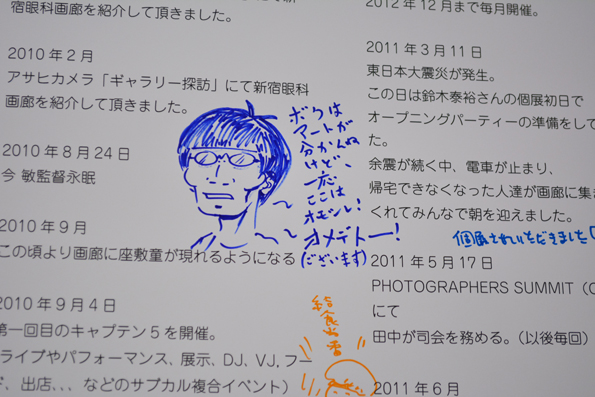 宿眼科画廊を紹介して頂きました。
2010年2月
アサヒカメラ「ギャラリー探訪」にて新宿眼科
画廊を紹介して頂きました。
2010年8月24日
今 敏監督永眠
2010年9月
この頃より画廊に座敷童が現れるようになる
2010年9月4日
第一回目のキャプテン5を開催。
ライブやパフォーマンス、展示、DJ、VJ,フー
ド、出店、、、などのサブカル複合イベント）
ボクは
アートが
分かんぬ
けど、
一応
ここは
オモシレ!
オメデトー!
(ございます)
給食当番
2012年12月まで毎月開催。
2011年3月11日
東日本大震災が発生。
この日は鈴木泰裕さんの個展初日で
オープニングパーティーの準備をして
た。
余震が続く中、電車が止まり、
帰宅できなくなった人達が画廊に集ま
くれてみんなで朝を迎えました。
2011年5月17日
PHOTOGRAPHERS SUMMIT（
にて
田中が司会を務める。（以後毎回）
2011年6月